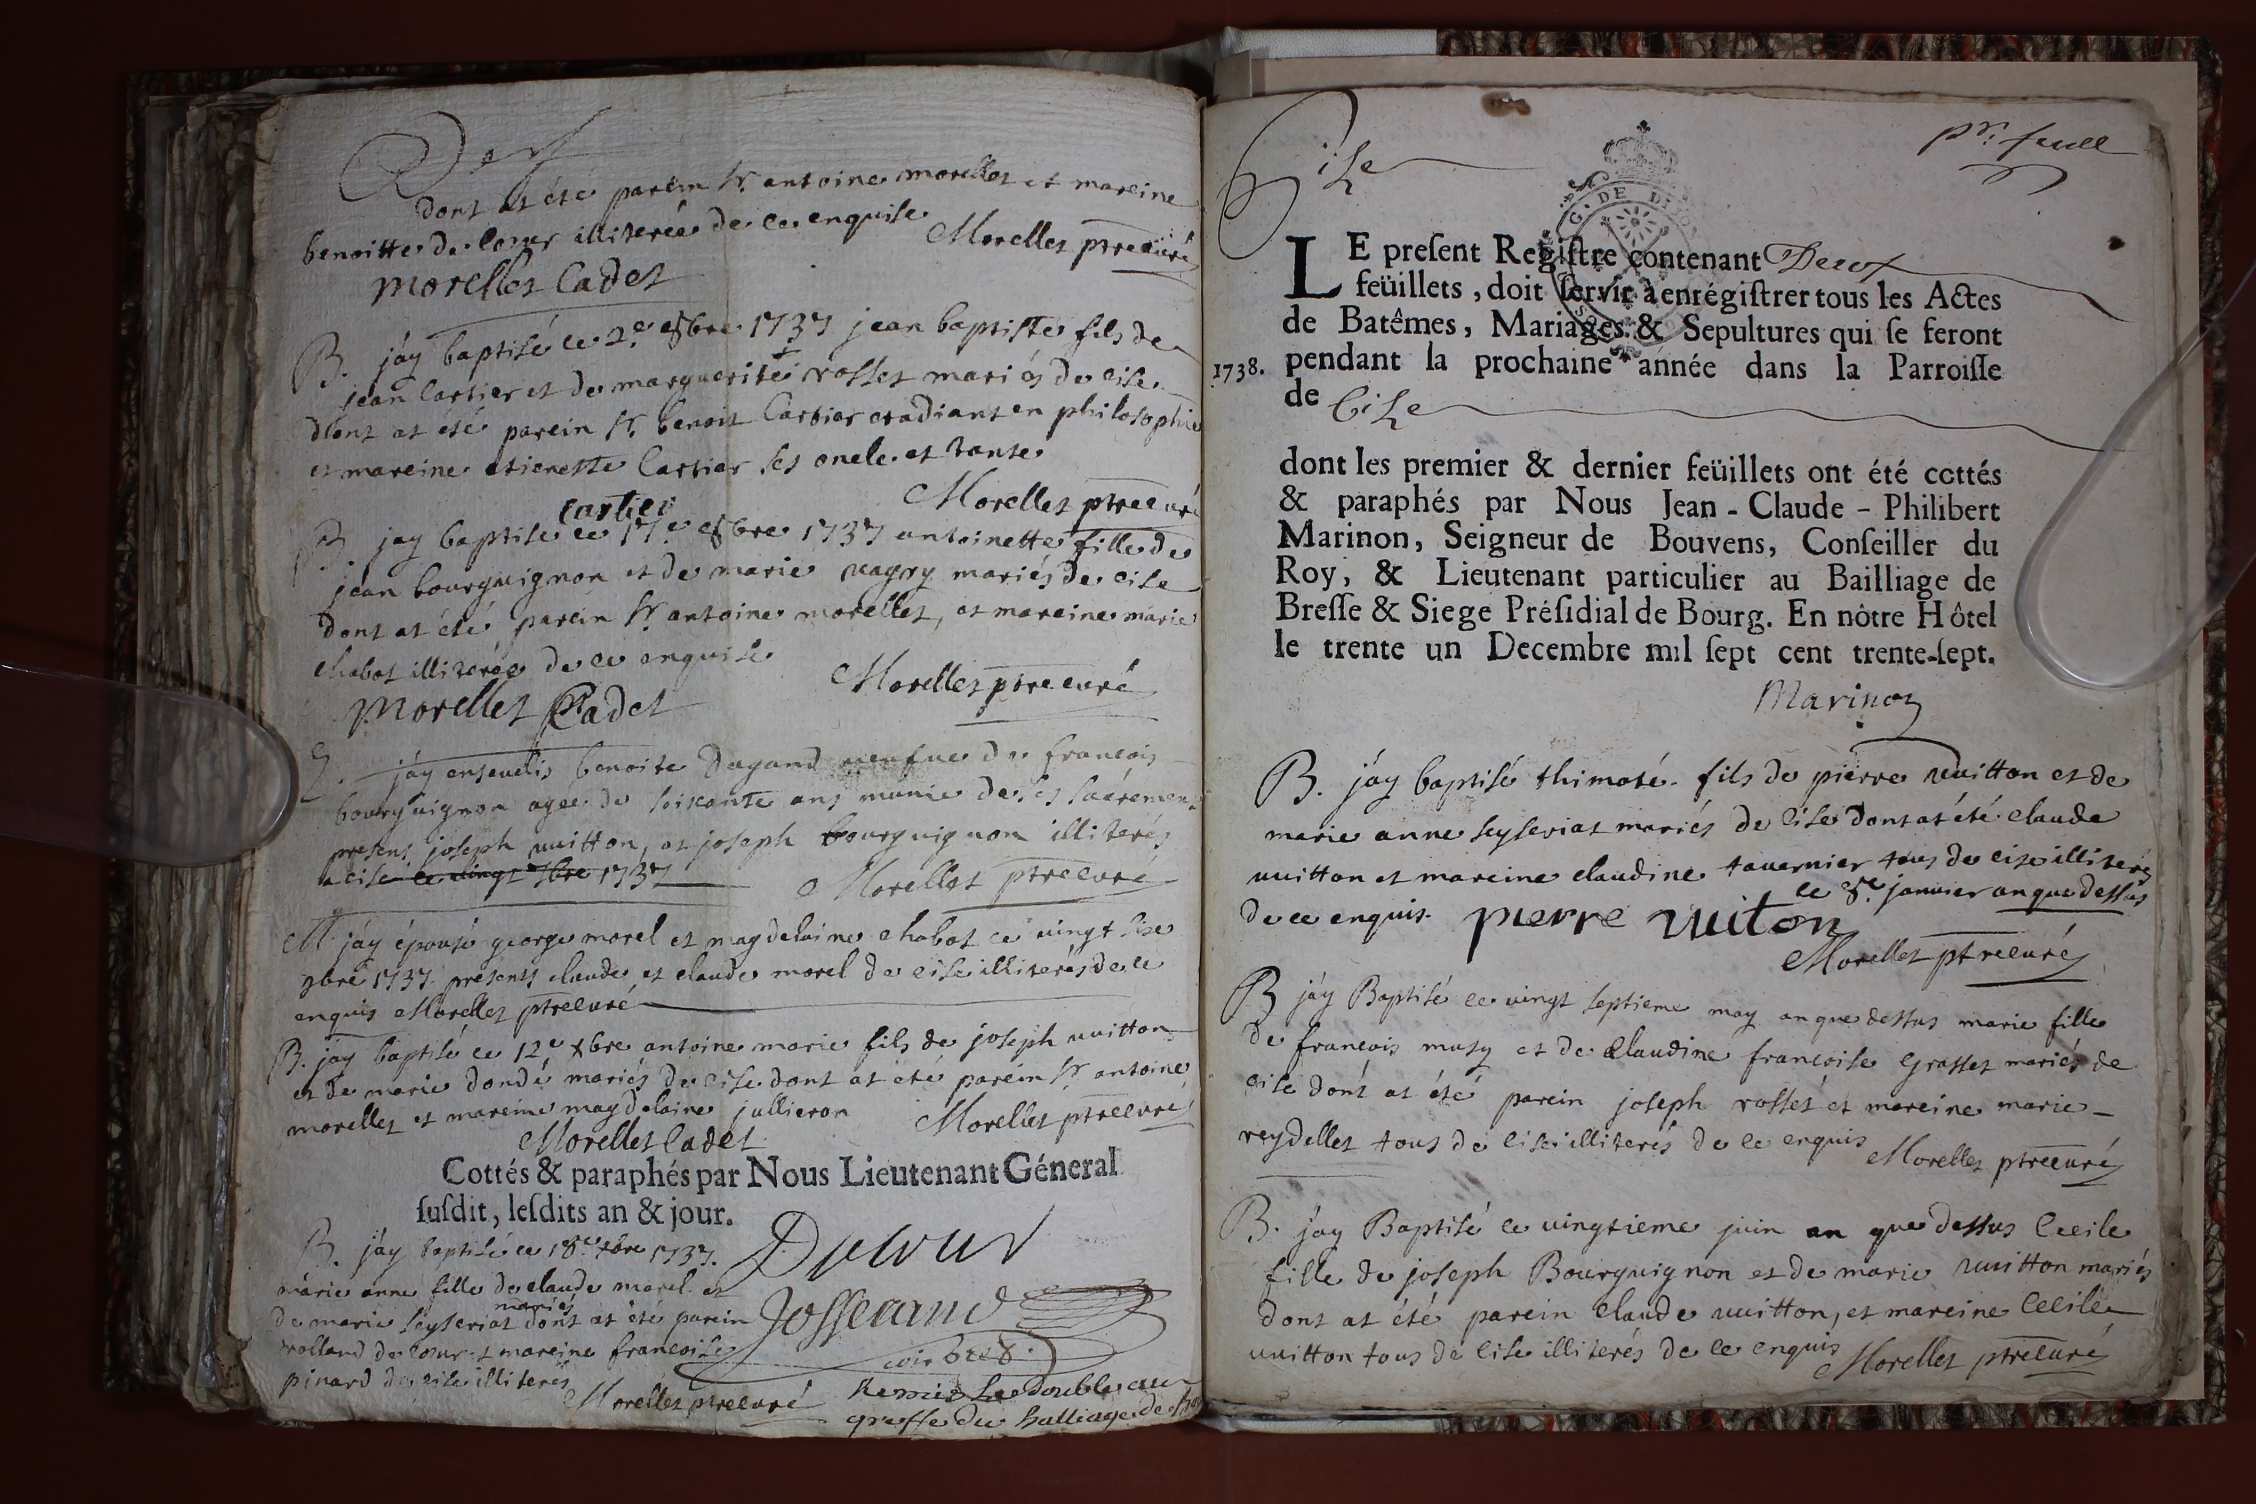 dont at été parein Sr. antoine morellet et mareine
benoitte de loeur illiterée de ce enquise Morellet ptrecuré
morellet Cadet
B. j'ay baptisé ce 2e 8bre 1737 jean baptiste fils de
jean Cartier et de marguerite rosset mariés de cise
dont at été parein Sr. benoit Cartier etudiant en philosophie
et mareine etienette Cartier ses oncle et tante
cartier Morellet ptrecuré
B jay baptisé ce 17e 8bre 1737 antoinette fille de
jean bourguignon et de marie vagry mariés de cise
dont at été parein Sr. antoine morellet, et mareine marie
chabot illiterée de ce enquise
Morellet ptrecuré
morellet Cadet
S. j'ay ensevelis benoite Dugand veufue de francois
bourguignon agée de soixante ans munie de ses sacremens
presens joseph vuitton, et joseph bourguignon illiterés
a cise ce vingt 8bre 1737
Morellet ptrecuré
M j'ay épousé george morel et magdelaine chabot ce vingt sixe
9bre 1737 presents claude et claude morel de cise illiterés de ce
enquis Morellet ptrecuré
B. jay baptisé ce 12e xbre antoine marie fils de joseph vuitton
et de marie dondé mariés de cise dont at été parein Sr antoine
morellet et mareine magdelaine jullieron Morellet ptrecuré
Morellet Cadet
Cottés & paraphés par Nous Lieutenant Géneral
susdit, lesdits an & jour.
B. j'ay baptisé ce 18e xbre 1737.
marie anne fille de claude morel et
de marie seyseriat mariés dont at été parein
rolland de loeur et mareine francoise
pinard de cise illiterés
Morellet ptrecuré
Josserand
Remis le double au
greffe du balliage de
Cise
pr. feuil
LE present Registre contenant
feüillets, doit servir à enrégistrer tous les Actes
de Batêmes, Mariages & Sepultures qui se feront
1738. pendant la prochaine année dans la Parroisse
de Cise
dont les premier & dernier feüillets ont été cottés
& paraphés par Nous Jean-Claude-Philibert
Marinon, Seigneur de Bouvens, Conseiller du
Roy, & Lieutenant particulier au Bailliage de
Bresse & Siege Présidial de Bourg. En nôtre Hôtel
le trente un Decembre mil sept cent trente-sept.
Marinon
B. j'ay baptisé thimoté fils de pierre vuitton et de
marie anne seyseriat mariés de cise dont at été claude
vuitton et mareine claudine tavernier tous de cise illiterés
ce 8e janvier an que dessus
de ce enquis. pierre vuiton
Morellet ptrecuré
B j'ay Baptisé ce vingt septieme may an que dessus marie fille
de francois musy et de Claudine francoise Grasset mariés de
cise dont at été parein joseph rosset et mareine marie
reydellet tous de cise illiterés de ce enquis Morellet ptrecuré
B. j'ay Baptisé ce vingtieme juin an que dessus Cecile
fille de joseph Bourguignon et de marie vuitton mariés
dont at été parein claude vuitton, et mareine Cecile
vuitton tous de cise illiterés de ce enquis
Morellet ptrecuré